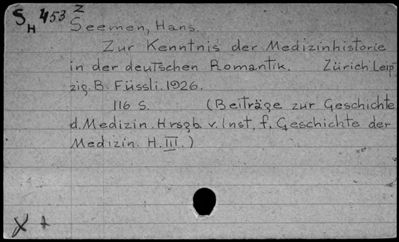 S H 453 Z
Seemen, Hans.
Zur Kenntnis der Medizinhistorie
in der deutschen Romantik. Zürich Leip
zig. B. Füssli. 1926.
116 S. (Beiträge zur Geschichte
d. Medizin. Hrsgb. v. Inst. f. Geschichte der
Medizin. H. III.)